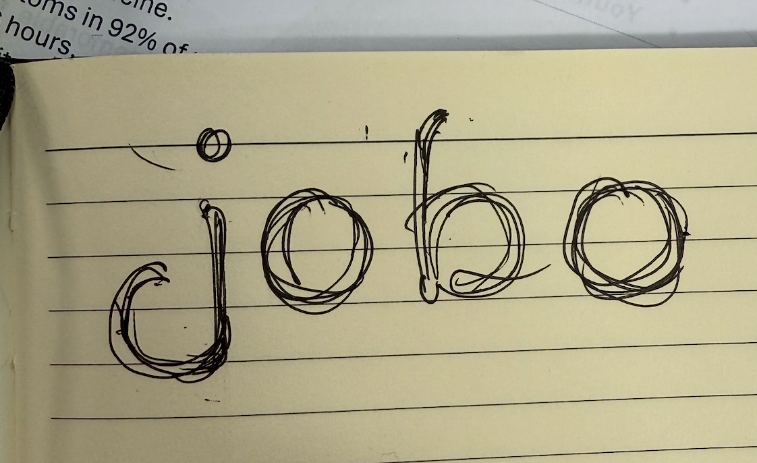 ine.
oms in 92% of
hours.
jobo